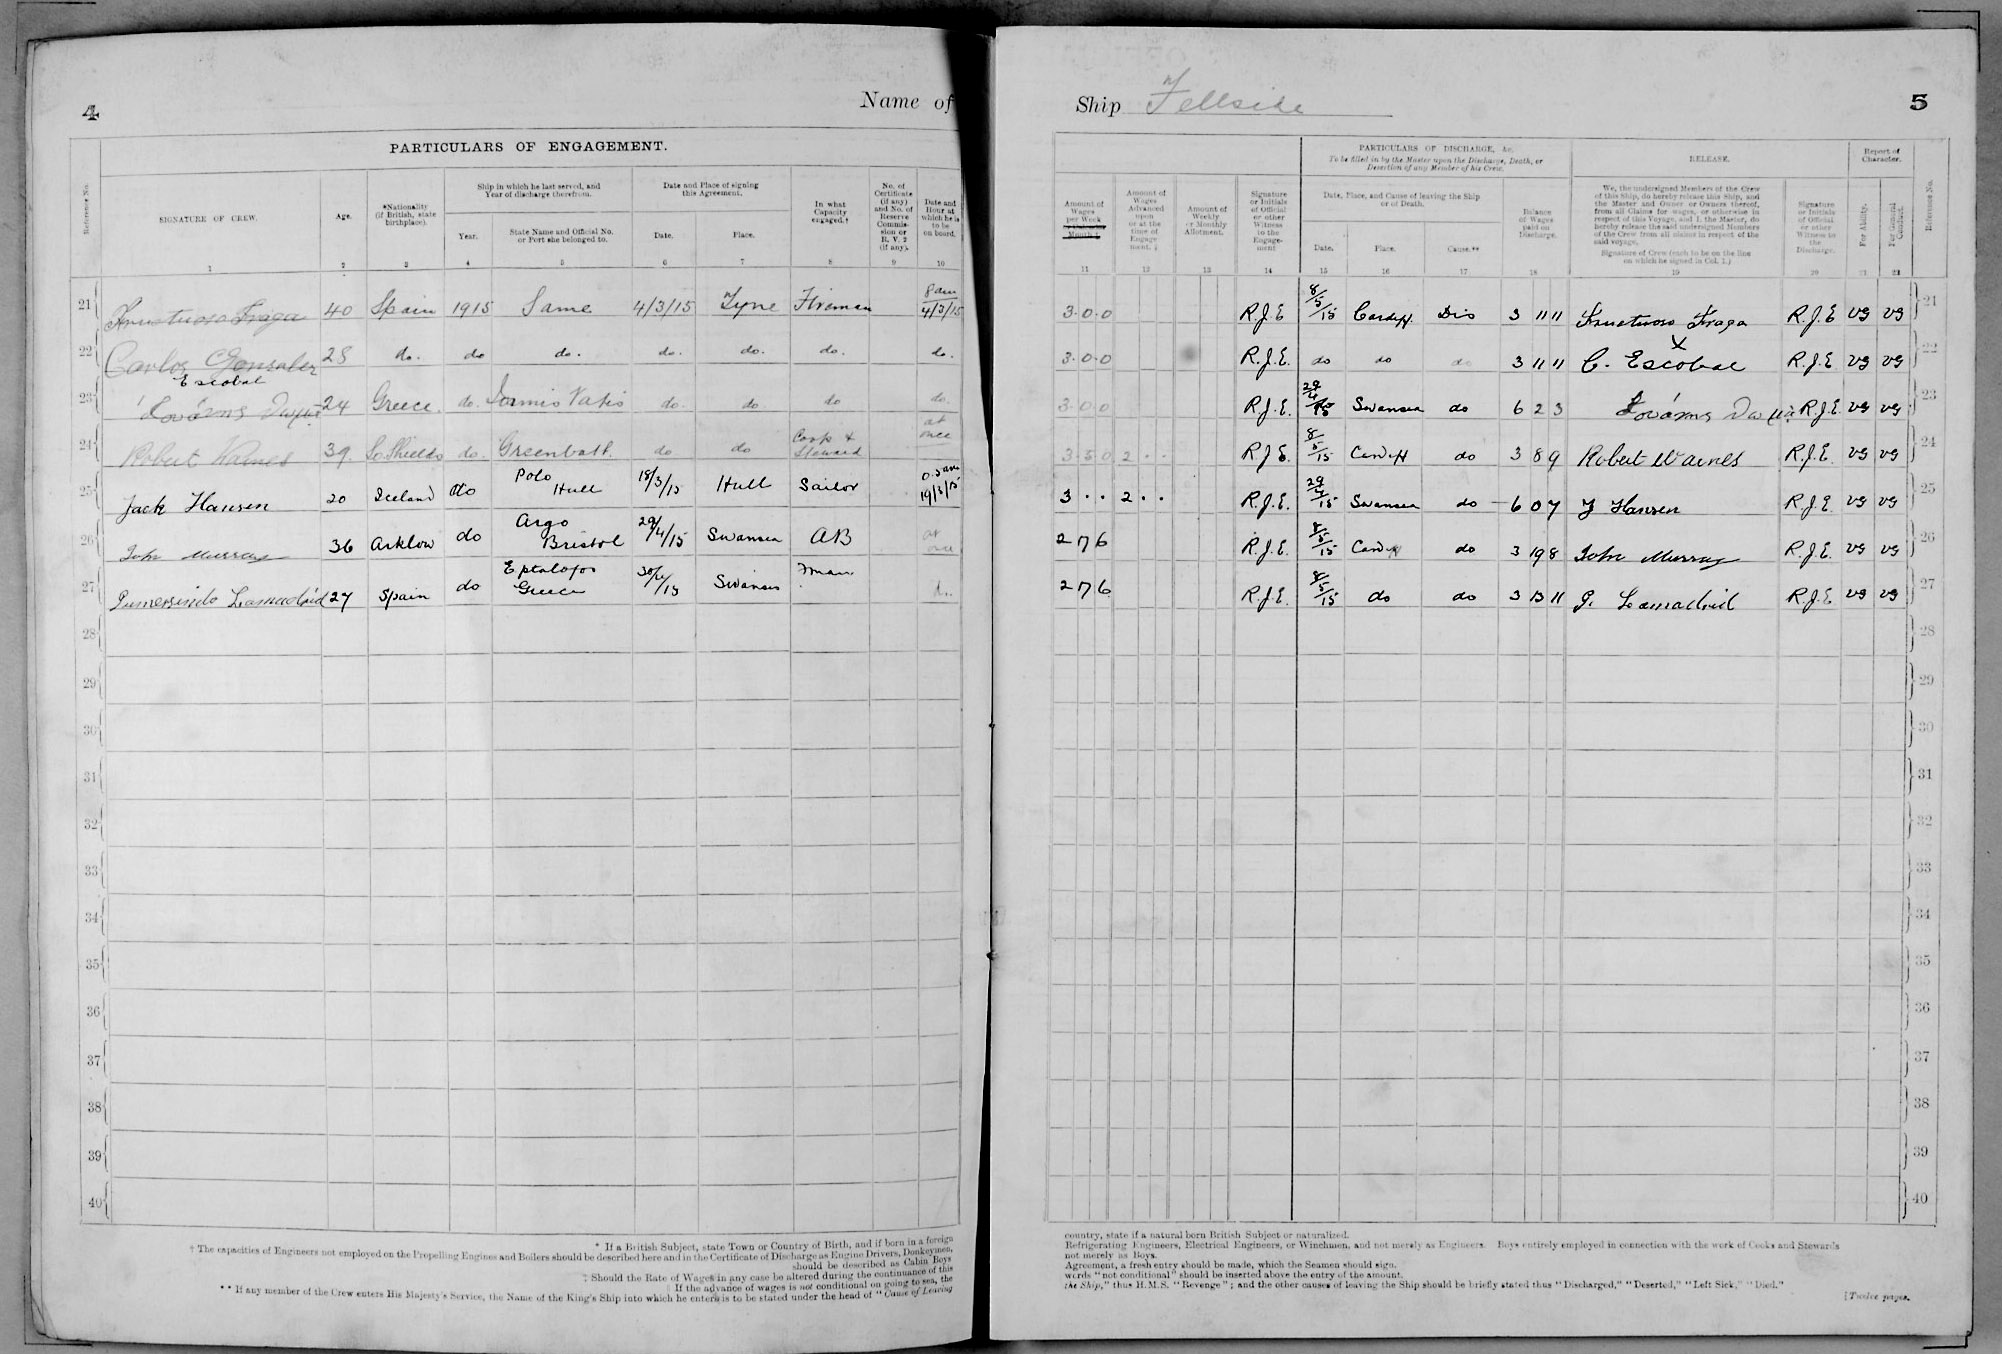 4
Name of
PARTICULARS OF ENGAGEMENT.
Reference No.
SIGNATURE OF CREW.
Age.
*Nationality (if British, state birthplace).
Ship in which he last served, and Year of discharge therefrom.
Year.
State Name and Official No. or Port she belonged to.
Date and Place of signing this Agreement.
Date.
Place.
In what Capacity engaged.†
No. of Certificate (if any) and No. of Reserve Commission or R. V. 2 (if any).
Date and Hour at which he is to be on board.
1 2 3 4 5 6 7 8 9 10
21 Fructuoso Fraga 40 Spain 1915 Same 4/3/15 Tyne Fireman 8 am 4/3/15
22 Carlos Gonzalez Escobal 28 do. do do. do. do. do. do.
23 24 Greece. do. do. do. do do.
24 Robert Warnes 39. So Shields do. Greenbatt. do do Cook & Steward at once
25 Jack Hansen 20 Iceland do Polo Hull 18/3/15 Hull Sailor 19/3/15
26 John Murray 36 Arklow do Argo Bristol 29/4/15 Swansea AB at once
27 Gumersindo Lamadrid 27 Spain do Eptalofos Greece 30/4/15 Swansea Fman do.
28
29
30
31
32
33
34
35
36
37
38
39
40
* If a British Subject, state Town or Country of Birth, and if born in a foreign
† The capacities of Engineers not employed on the Propelling Engines and Boilers should be described here and in the Certificate of Discharge as Engine Drivers, Donkeymen,
should be described as Cabin Boys
‡ Should the Rate of Wages in any case be altered during the continuance of this
If the advance of wages is not conditional on going to sea, the
** If any member of the Crew enters His Majesty's Service, the Name of the King's Ship into which he enters is to be stated under the head of "Cause of Leaving
Ship Fellside
5
PARTICULARS OF DISCHARGE, &c.
To be filled in by the Master upon the Discharge, Death, or Desertion of any Member of his Crew.
RELEASE.
Report of Character.
Amount of Wages per Week or Calendar Month ‡.
Amount of Wages Advanced upon or at the time of Engagement. ‡
Amount of Weekly or Monthly Allotment.
Signature or Initials of Official or other Witness to the Engagement
Date, Place, and Cause of leaving the Ship or of Death.
Date.
Place.
Cause.**
Balance of Wages paid on Discharge.
We, the undersigned Members of the Crew of this Ship, do hereby release this Ship, and the Master and Owner or Owners thereof, from all Claims for wages, or otherwise in respect of this Voyage, and I, the Master, do hereby release the said undersigned Members of the Crew from all claims in respect of the said voyage.
Signature of Crew (each to be on the line on which he signed in Col. 1.)
Signature or Initials of Official or other Witness to the Discharge.
For Ability.
For General Conduct.
Reference No.
11 12 13 14 15 16 17 18 19 20 21 22
3.0.0 R.J.E 8/5/15 Cardiff. Dis 3 11 11 Fructuoso Fraga R.J.E VG VG 21
3.0.0 R.J.E. do do do 3 11 11 C. X Escobal R.J.E VG VG 22
3.0.0 R.J.E. 29/4/15 Swansea do 6 2 3 R.J.E VG VG 23
3.5.0 2 . . R.J.E. 8/5/15 Cardiff do 3 8 9 Robert Warnes R.J.E. VG VG 24
3 . . 2 . . R.J.E. 29/4/15 Swansea do 6 0 7 J Hansen R.J.E. VG VG 25
2 7 6 R.J.E. 8/5/15 Cardiff do 3 19 8 John Murray R.J.E. VG VG 26
2 7 6 R.J.E. 8/5/15 do do 3 13 11 G. Lamadrid R.J.E VG VG 27
28
29
30
31
32
33
34
35
36
37
38
39
40
country, state if a natural born British Subject or naturalized.
Refrigerating Engineers, Electrical Engineers, or Winchmen, and not merely as Engineers. Boys entirely employed in connection with the work of Cooks and Stewards
not merely as Boys.
Agreement, a fresh entry should be made, which the Seamen should sign.
words "not conditional" should be inserted above the entry of the amount.
the Ship," thus H.M.S. "Revenge"; and the other causes of leaving the Ship should be briefly stated thus "Discharged," "Deserted," "Left Sick," "Died."
[Twelve pages.